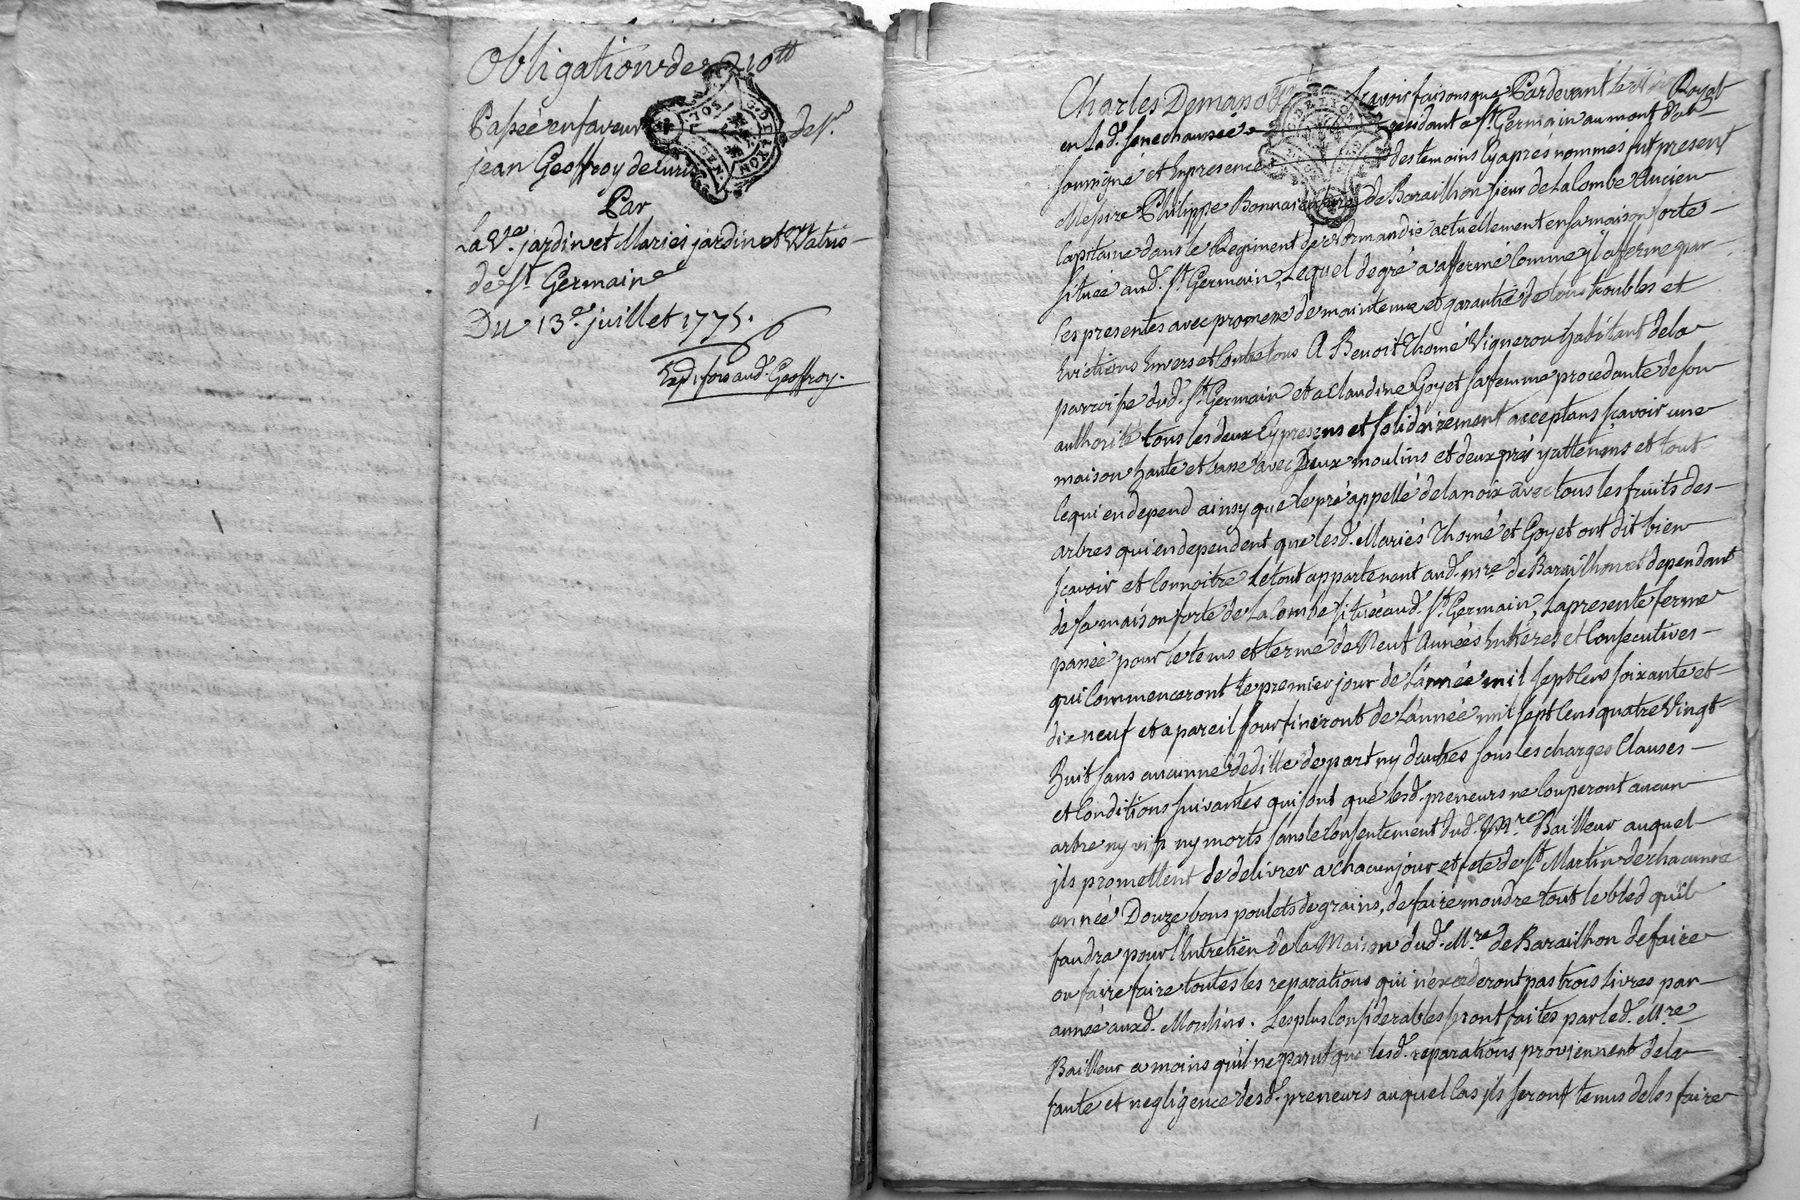 Obligation de 210tt
Passée en faveur de Sr.
jean Geoffroy de
Par
La Ve. jardin et Mariés jardin et
de St. Germain
Du 13e. juillet 1775.
Exp. aud. Geoffroy.
G. DE LYON
SOL
Charles Demasso scavoir faisons que Pardevant le Royal
en la d. senechaussée residant a St. Germain au mont d'or
soussigné et En presence des temoins Cyaprés nommés fut present
Messire Philippe Bonnaventure de Baraillhon sieur de La Combe Ancien
Capitaine dans le Regiment de Normandie actuellement en sa maison forte
située aud. St. Germain, Lequel de gré a affermé Comme jl afferme par
Ces presentes avec promesse de maintenue et garantie de tous troubles et
Evictions Envers et Contre tous A Benoit Thomé Vigneron habitant de la
parroisse dud. St. Germain et a Claudine Goyet sa femme procedante de son
authorité tous les deux Cy presens et solidairement acceptans scavoir une
maison haute et basse avec Deux moulins et deux prés y attenans et tout
Ce qui en depend ainsy que le pré appellé de la noix avec tous les fruits des
arbres qui en dependent que lesd. Mariés Thomé et Goyet ont dit bien
scavoir et Connoitre Le tout appartenant aud. mre. de Baraillhon et dependant
de sa maison forte de La Combe située aud. St. Germain, La presente ferme
passée pour le tems et terme de Neuf Années Entieres et Consecutives
qui Commenceront le premier jour de L'année mil sept Cens soixante et
dix neuf et a pareil jour finiront de L'année mil sept Cens quatre Vingt
Huit sans aucunne deditte de part ny d'autres sous les charges Clauses
et Conditions suivantes qui sont que lesd. preneurs ne Couperont aucun
arbre ny vifs ny morts sans le Consentement dud. Mre. Bailleur auquel
jls promettent de delivrer a chacun jour et fete de St. Martin de chacunne
année Douze bons poulets de grains, de faire moudre tout le bled qu'il
faudra pour l'Entretien de la Maison dud. Mre. de Baraillhon de faire
ou faire faire toutes les reparations qui n'excederont pas trois Livres par
année auxd. Moulins. Les plus Considerables seront faites par led. Mre
Bailleur a moins qu'il ne parut que lesd. reparations proviennent de la
faute et negligence desd. preneurs auquel Cas jls seront tenus de les faire